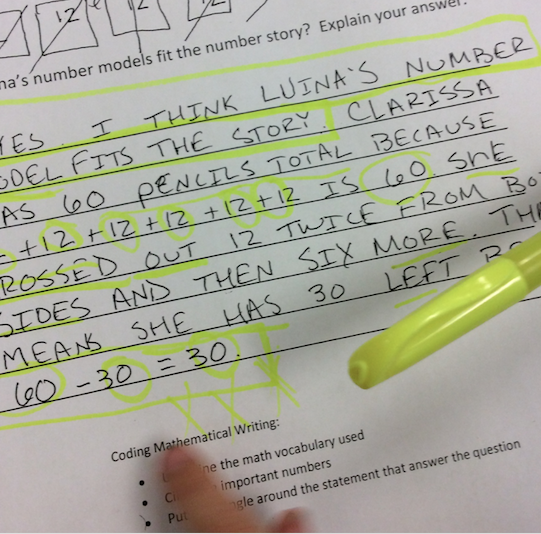 12 12
na's number models fit the number story? Explain your answer.
YES. I THINK LUINA'S NUMBER
ODEL FITS THE STORY. CLARISSA
AS 60 PENCILS TOTAL BECAUSE
+12+12+12+12+12 IS 60 SHE
ROSSED OUT 12 TWICE FROM BO
SIDES AND THEN SIX MORE. THA
MEANS SHE HAS 30 LEFT
60-30=30.
Coding Mathematical Writing:
• the math vocabulary used
• important numbers
• Put around the statement that answer the question